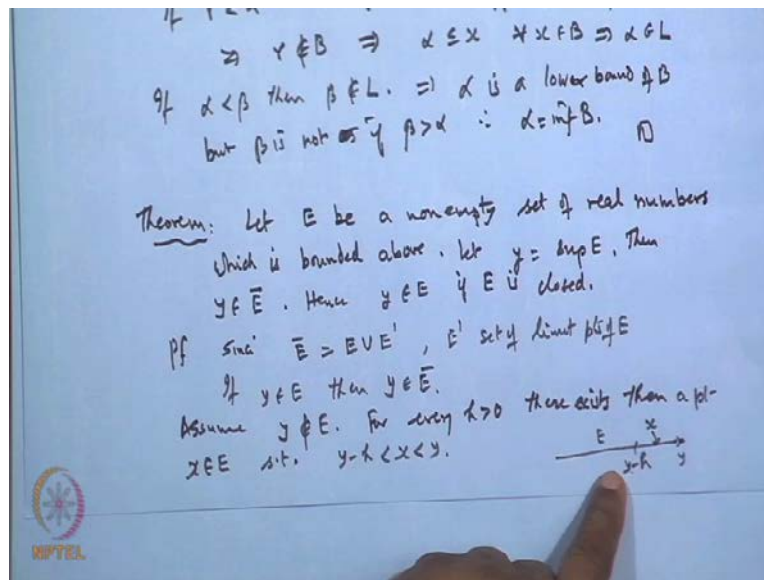 ⇒ γ ∉ B ⇒ α ≤ x ∀ x ∈ B ⇒ α ∈ L
If α < β then β ∉ L. ⇒ α is a lower bound of B
but β is not if β > α ∴ α = inf B.
Theorem: Let E be a nonempty set of real numbers
which is bounded above. Let y = sup E. Then
y ∈ Ē. Hence y ∈ E if E is closed.
Pf Since Ē = E ∪ E', E' set of limit pts of E
If y ∈ E then y ∈ Ē.
Assume y ∉ E. For every h > 0 there exists then a pt-
x ∈ E s.t. y-h < x < y.
E x
y-h y
NPTEL